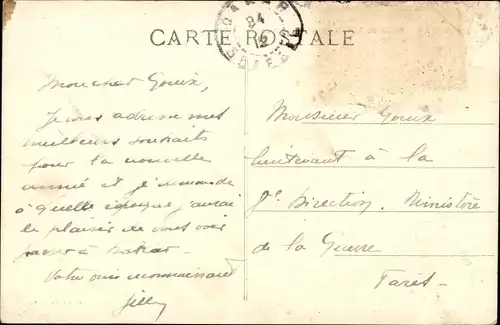 CARTE POSTALE
DAKAR
Mon cher Goux,
Je vous adresse mes
meilleurs souhaits
pour la nouvelle
année et je me demande
à quelle époque j'aurai
le plaisir de vous voir
passer à Dakar.
Votre ami reconnaissant
Monsieur Goux
lieutenant à la
Direction. Ministère
de la Guerre
Paris -